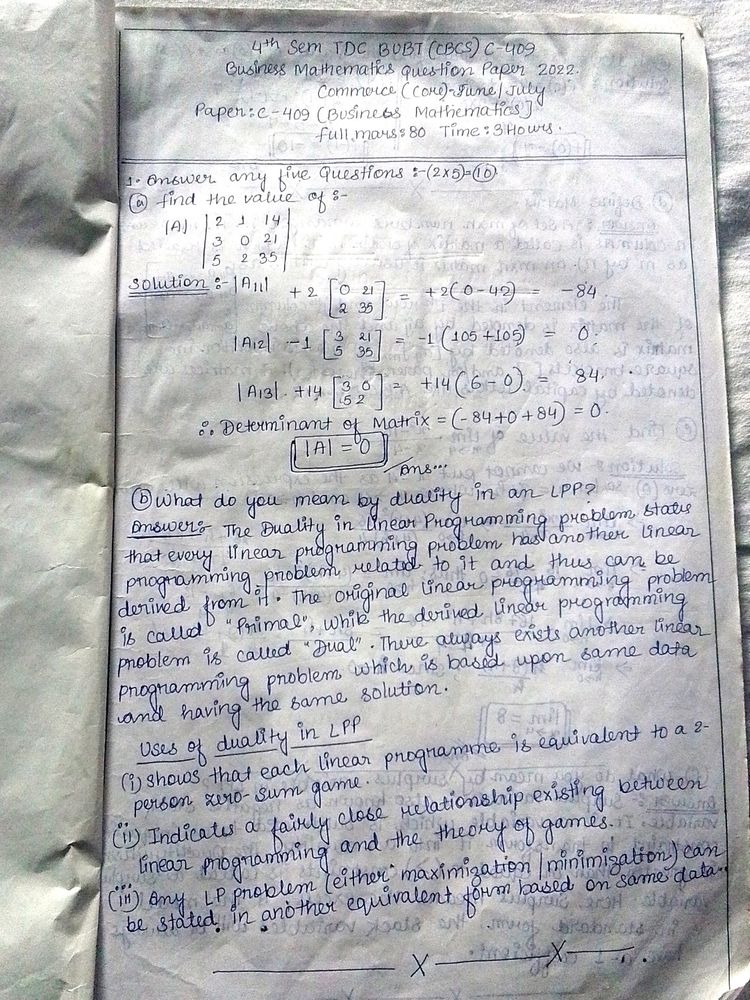 4th Sem TDC BUBT (CBCS) C-409
Business Mathematics Question Paper 2022.
Commerce (Core)-June/July
Paper: C-409 (Business Mathematics)
full mars: 80 Time: 3 Hours.
1. Answer any five Questions :-(2x5)=(10)
(a) find the value of :-
|A| | 2 1 14 |
| 3 0 21 |
| 5 2 35 |
Solution :- |A11| +2 [0 21 = +2(0-42) = -84
2 35]
|A12| -1 [3 21 = -1(105+105) = 0.
5 35]
|A13| +14 [3 0 = +14(6-0) = 84.
5 2]
∴ Determinant of Matrix = (-84+0+84) = 0.
|A| = 0
Ans...
(b) What do you mean by duality in an LPP?
Answer:- The Duality in Linear Programming problem states
that every linear programming problem has another linear
programming problem related to it and thus can be
derived from it. The original linear programming problem
is called "Primal", while the derived linear programming
problem is called "Dual". There always exists another linear
programming problem which is based upon same data
and having the same solution.
Uses of duality in LPP
(i) Shows that each linear programme is equivalent to a 2-
person zero-sum game.
(ii) Indicates a fairly close relationship existing between
linear programming and the theory of games.
(iii) Any LP problem (either maximization/minimization) can
be stated in another equivalent form based on same data.
X X